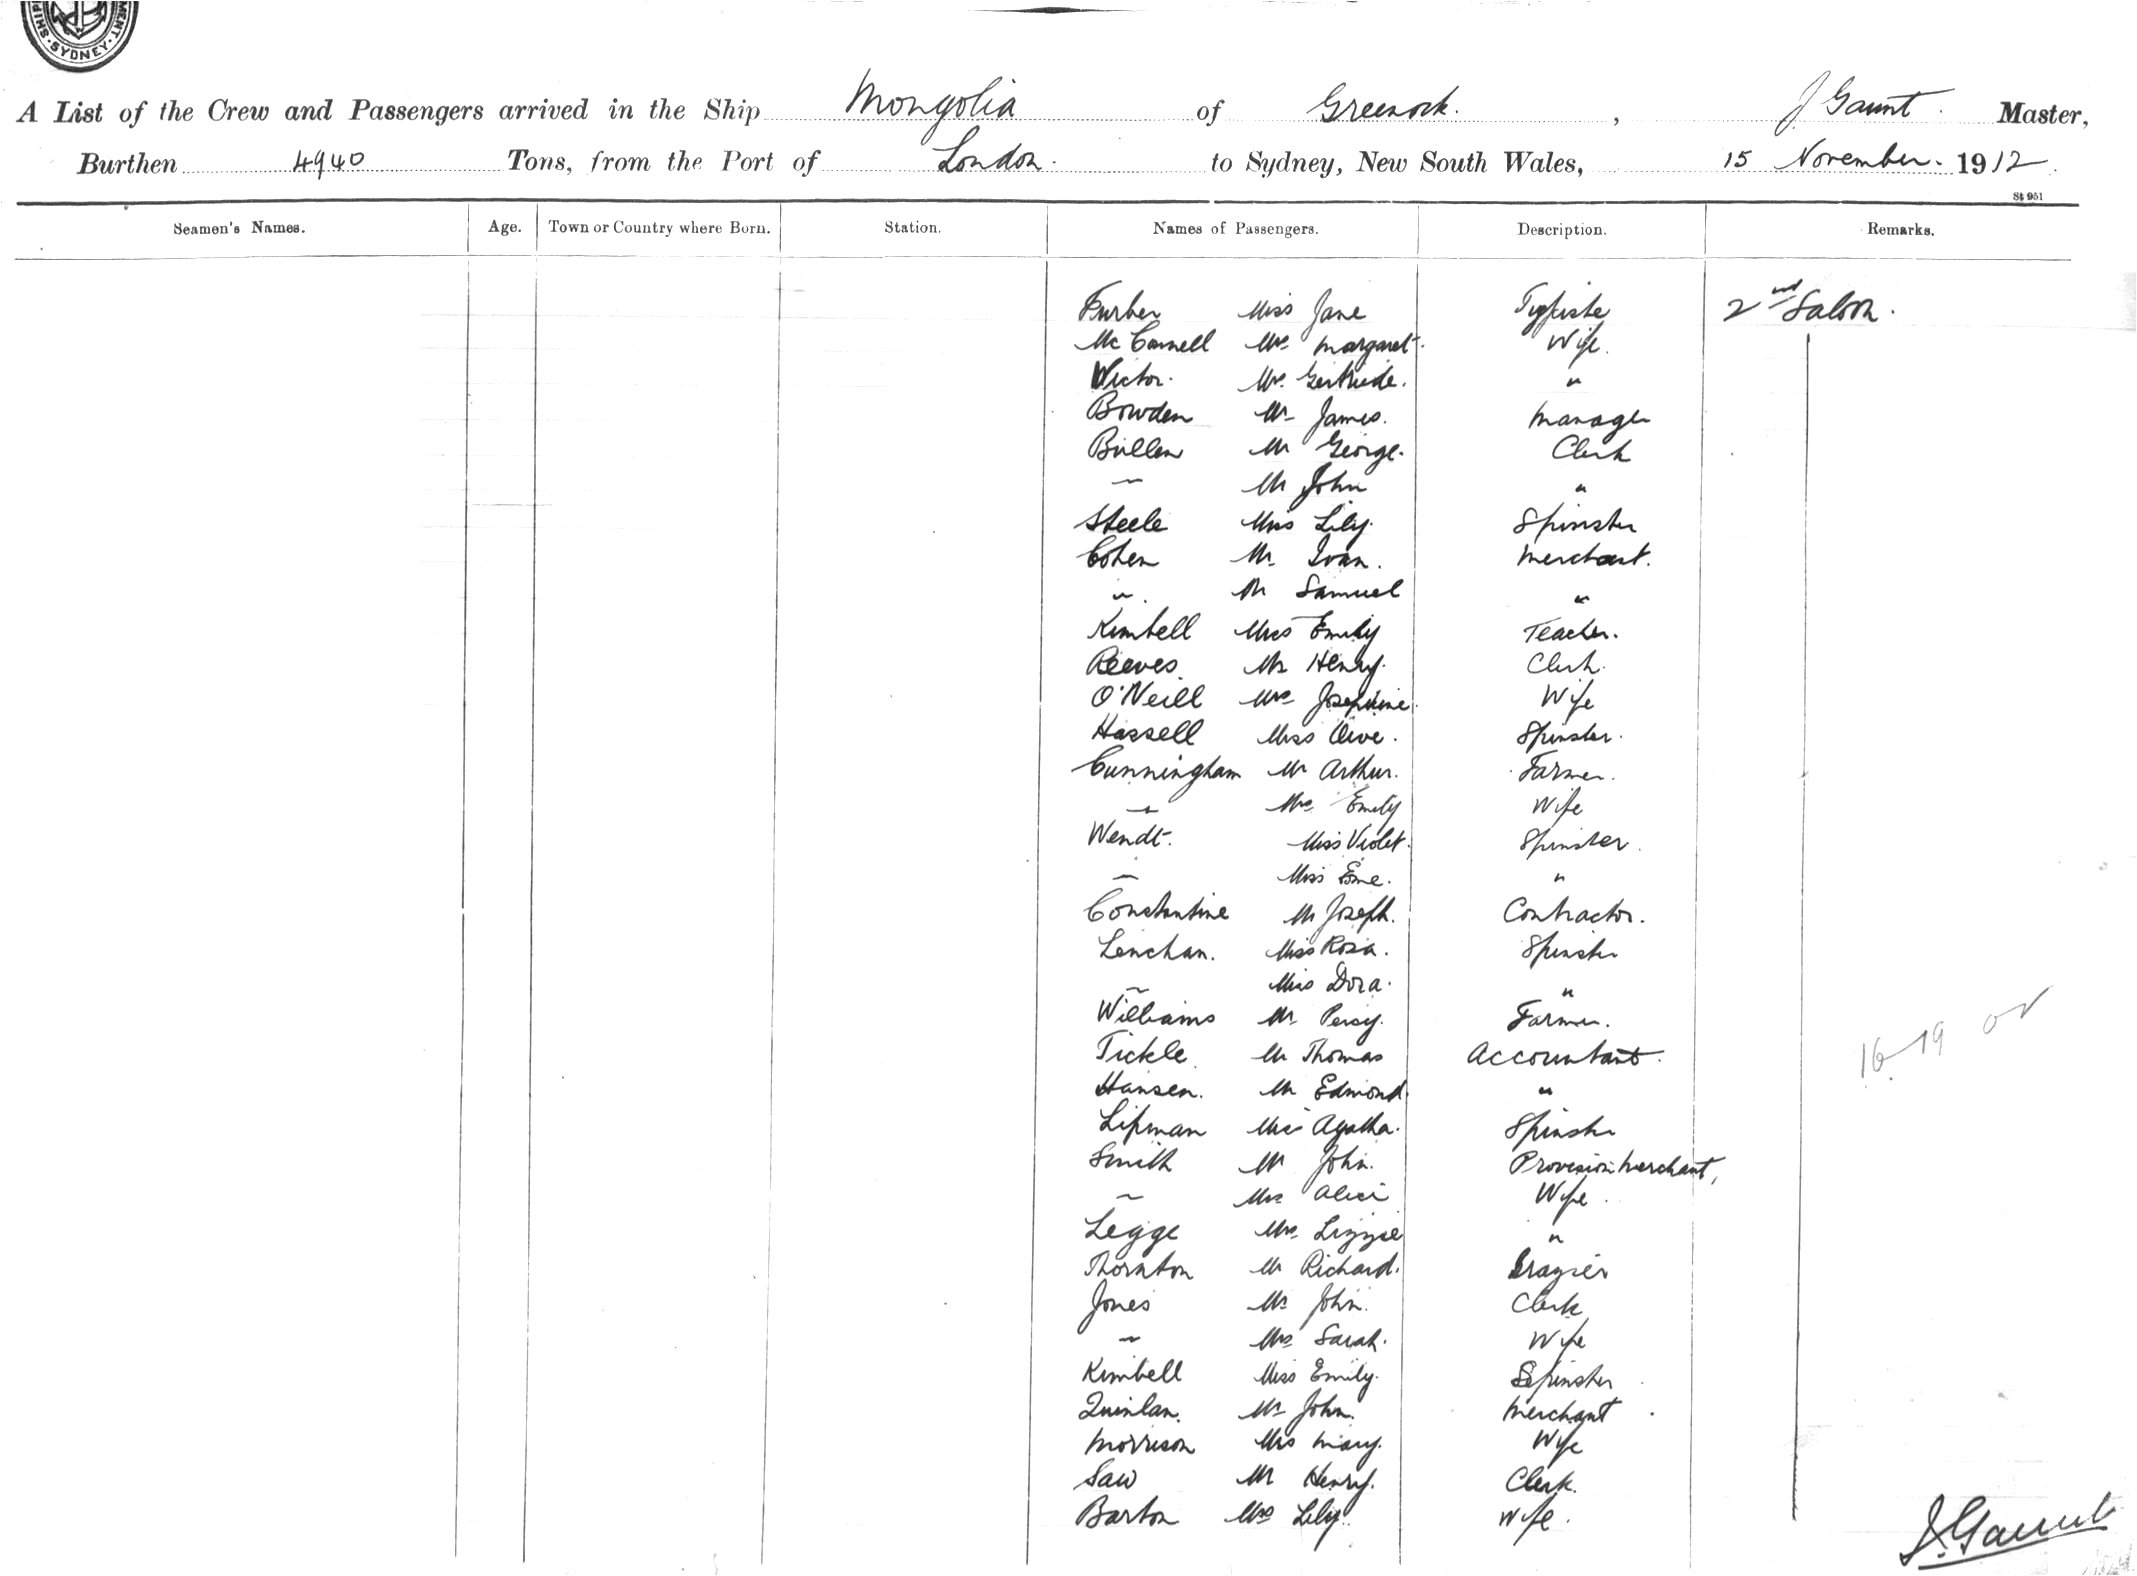 SHIP MENT · SYDNEY ·
A List of the Crew and Passengers arrived in the Ship Mongolia of Greenock. , J Gaunt. Master,
Burthen 4940 Tons, from the Port of London. to Sydney, New South Wales, 15 November. 1912.
St 951
Seamen's Names. Age. Town or Country where Born. Station. Names of Passengers. Description. Remarks.
Furber Miss Jane Typiste 2nd Saloon.
McConnell Mrs Margaret. Wife.
Victor. Mrs. Gertrude. "
Bowden Mr James. Manager
Bullen Mr George. Clerk
" Mr John "
Steele Miss Lily. Spinster
Cohen Mr. Ivan. Merchant.
" Mr Samuel "
Kimbell Miss Emily Teacher.
Reeves. Mr Henry. Clerk.
O'Neill Mrs Josephine. Wife
Hassell Miss Olive. Spinster.
Cunningham Mr Arthur. Farmer.
" Mrs Emily Wife
Wendt. Miss Violet. Spinster.
" Miss Esme. "
Constantine Mr Joseph. Contractor.
Lenehan. Miss Rosa. Spinster
" Miss Dora. "
Williams Mr Percy. Farmer.
Tickle. Mr Thomas Accountant.
Hansen. Mr Edmond. "
Lipman Miss Agatha. Spinster
Smith Mr John. Provision Merchant,
" Mrs Alice Wife.
Legge Mrs Lizzie "
Thornton Mr Richard. Grazier
Jones Mr John. Clerk
" Mrs Sarah. Wife
Kimbell Miss Emily. Spinster
Quinlan. Mr John. Merchant.
Morrison Mrs Mary. Wife
Saw Mr Henry. Clerk.
Barton Mrs Lily. Wife.
16 19
J. Gaunt